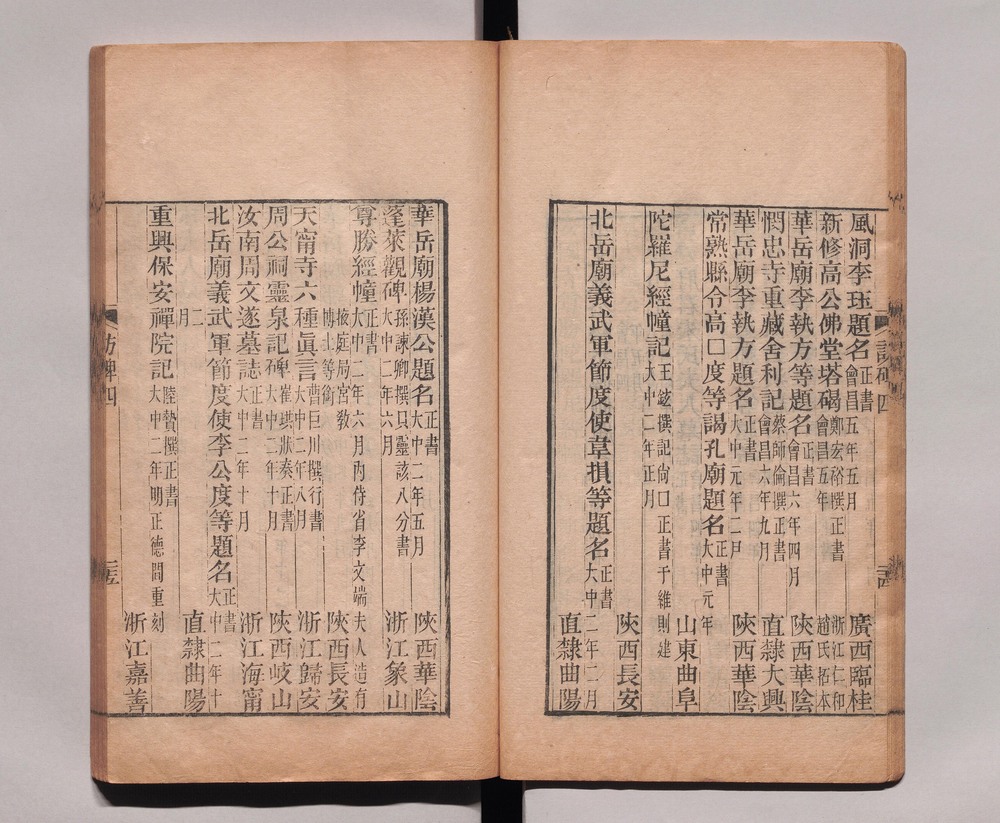 風洞李珏題名正書會昌五年五月 廣西臨桂
新修高公佛堂塔碣鄭宏裕撰正書會昌五年 浙江仁和趙氏拓本
華岳廟李執方等題名正書會昌六年四月 陝西華陰
憫忠寺重藏舍利記蔡師倫撰正書會昌六年九月 直隸大興
華岳廟李執方題名正書大中元年二月 陝西華陰
常熟縣令高口度等謁孔廟題名正書大中元年
山東曲阜
陀羅尼經幢記王鉉撰記尙口正書于維則建大中二年正月
陝西長安
北岳廟義武軍節度使韋損等題名正書大中二年二月
直隸曲陽
訪碑四
華岳廟楊漢公題名正書大中二年五月 陝西華陰
蓬萊觀碑孫諫卿撰貝靈該八分書大中二年六月 浙江象山
尊勝經幢正書大中二年六月內侍省李文端夫人造有
掖庭局宮敎博士等銜 陝西長安
天甯寺六種眞言曹巨川撰行書大中二年八月 浙江歸安
周公祠靈泉記碑崔珙狀奏正書大中二年十月 陝西岐山
汝南周文遂墓誌正書大中二年十月 浙江海甯
北岳廟義武軍節度使李公度等題名正書大中二年十
二月 直隸曲陽
重興保安禪院記陸贄撰正書大中二年明正德間重刻
浙江嘉善
訪碑四